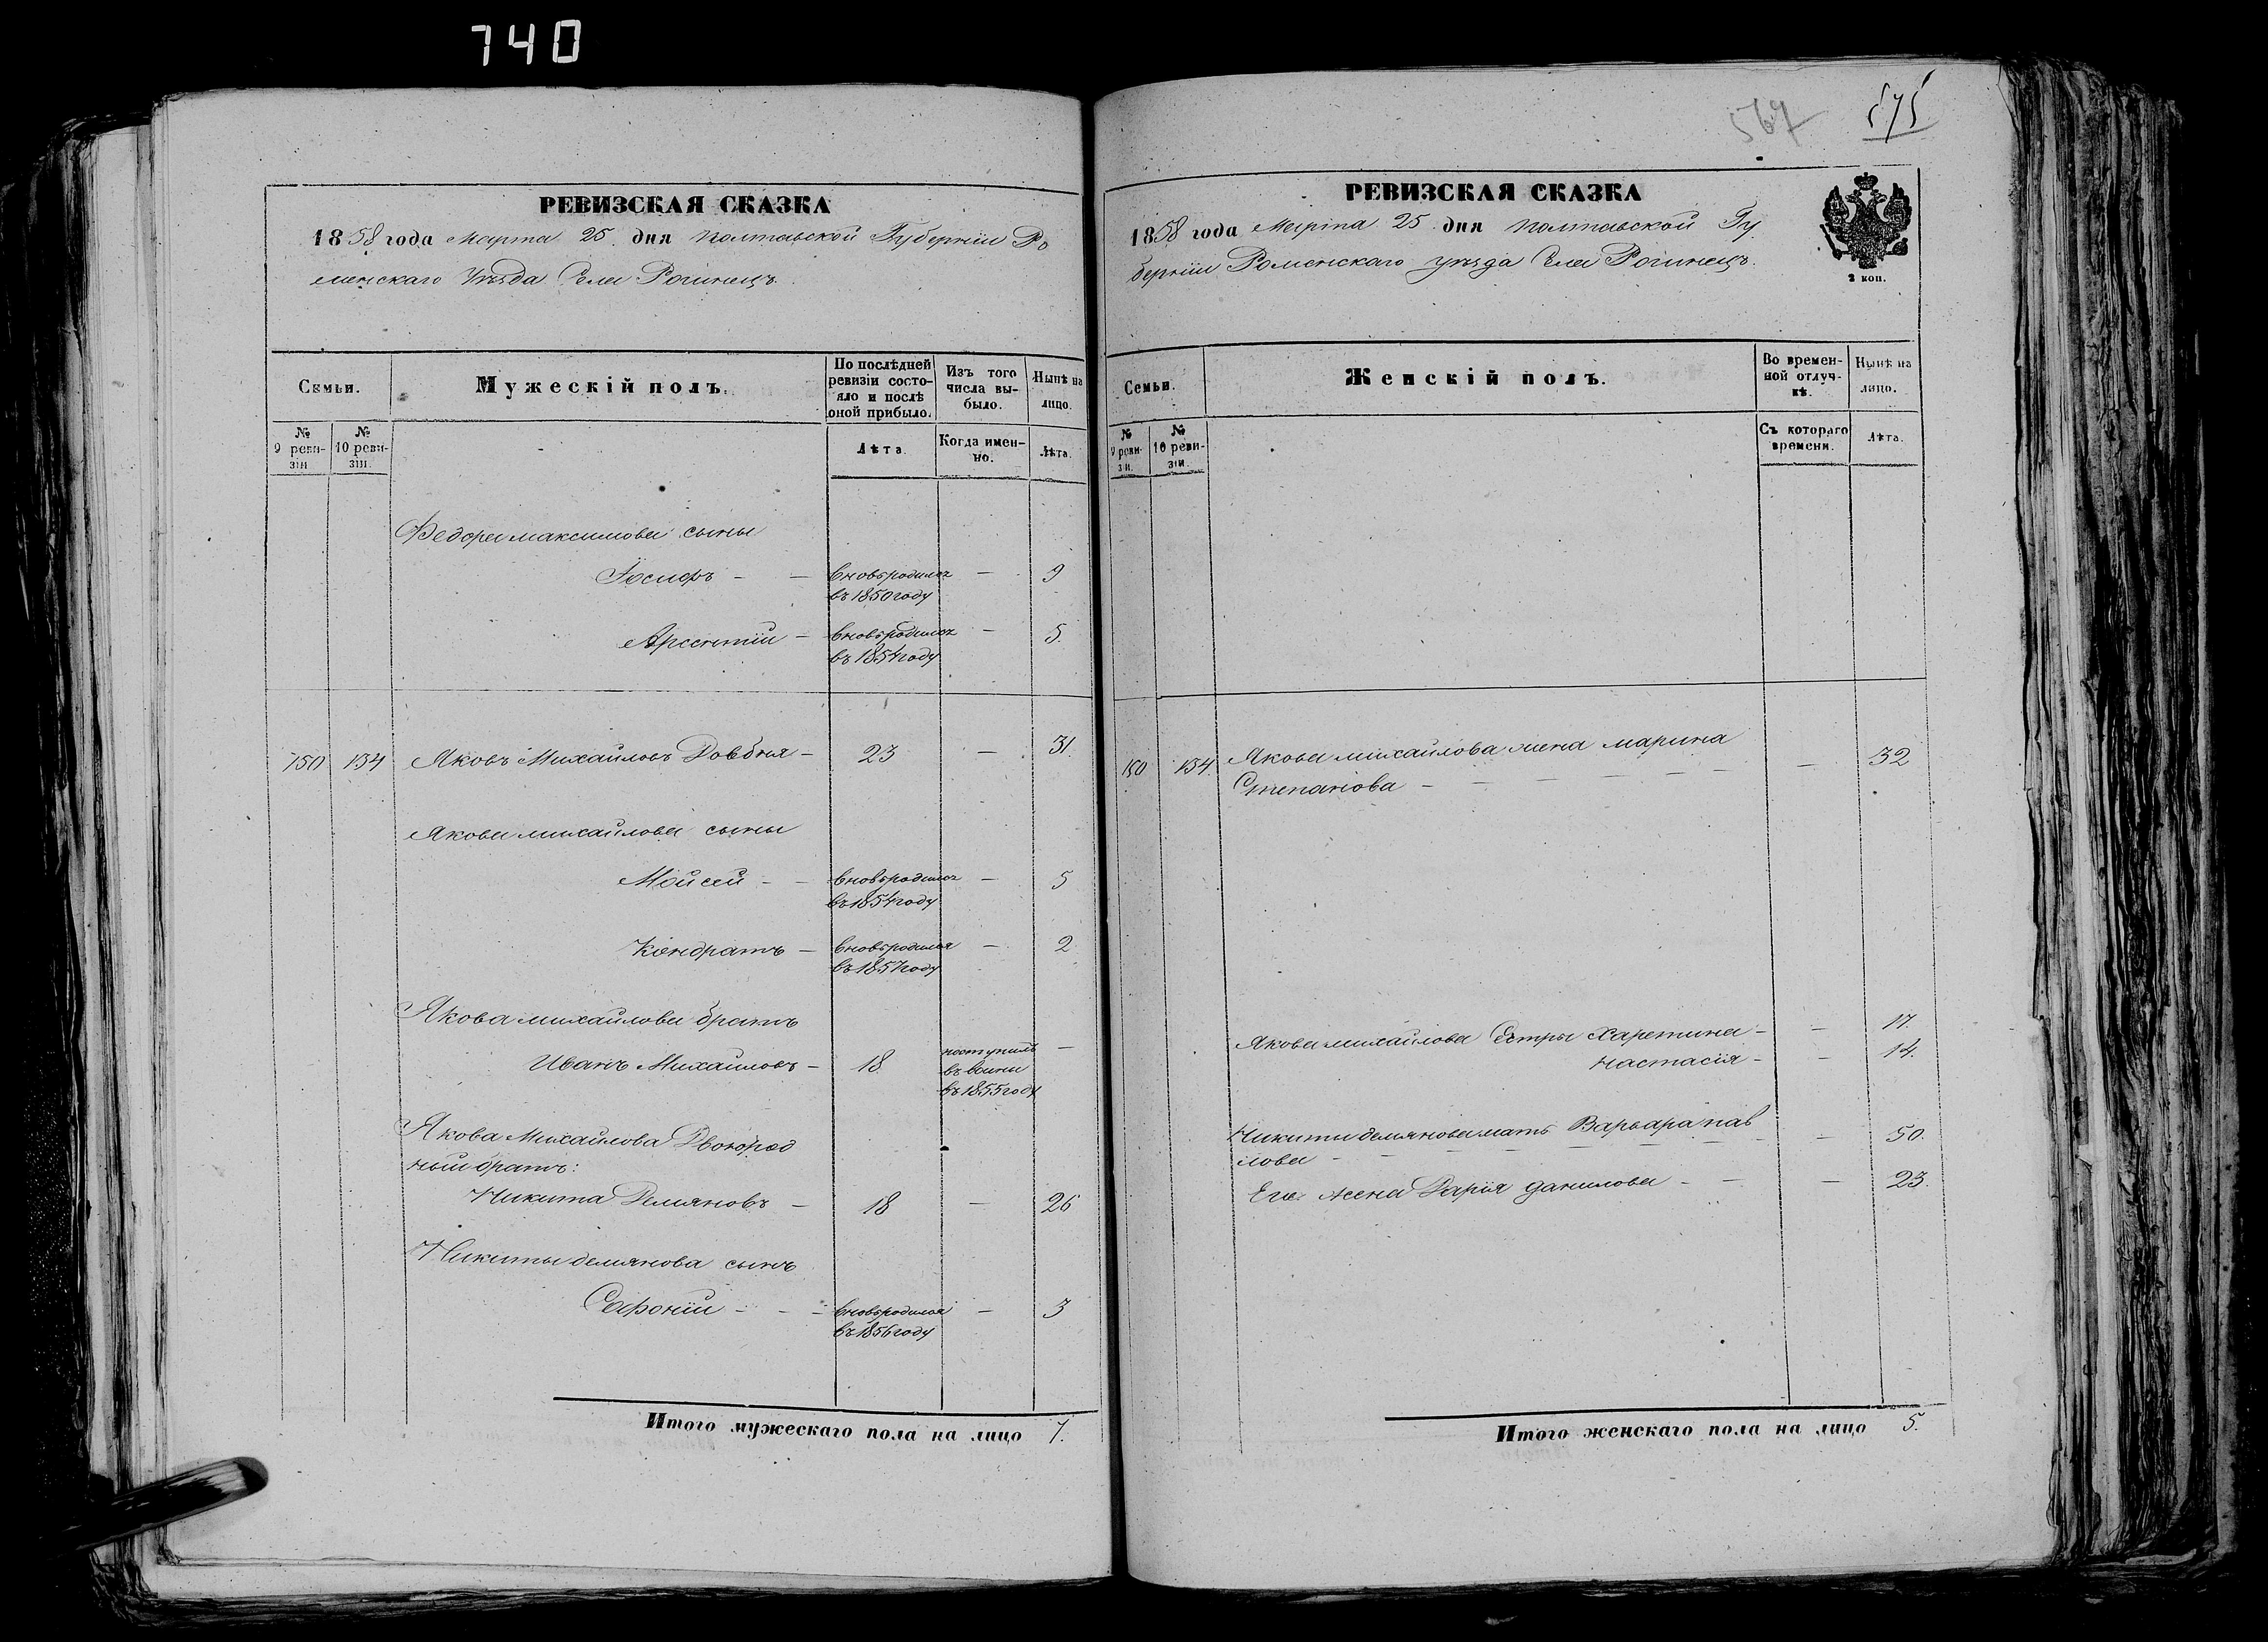 740
РЕВИЗСКАЯ СКАЗКА
1858 года Марта 25 дня Полтавской Губерніи Ро
менскаго Уѣзда Села Рогинецъ.
Семьи.
Мужескій полъ.
По послѣдней ревизіи состояло и послѣ оной прибыло.
Изъ того числа выбыло.
Нынѣ на лицо.
№ 9 ревизіи
№ 10 ревизіи.
Лѣта.
Когда именно.
Лѣта.
Федора Максимова сыны
Іосифъ - - вновьродился въ 1850 году - 9
Арсентій - вновьродился въ 1854 году - 5.
150 154 Яковъ Михайловъ Довбня - 23 - 31.
Якова Михайлова сыны
Мойсей - - вновьродился въ 1854 году - 5
Кондратъ - вновьродился въ 1857 году - 2
Якова Михайлова братъ
Иванъ Михайловъ - 18 поступилъ въ воины въ 1855 году -
Якова Михайлова Двоюрод
ный братъ:
Никита Демяновъ - 18 - 26
Никиты Демянова сынъ
Софоній - - - вновьродился въ 1856 году - 3
Итого мужескаго пола на лицо 7.
567 575
РЕВИЗСКАЯ СКАЗКА
1858 года Марта 25 дня Полтавской Гу
берніи Роменскаго уѣзда Села Рогинецъ.
2 коп.
Семьи.
Женскій полъ.
Во временной отлучкѣ.
Нынѣ на лицо.
№ 9 ревизіи.
№ 10 ревизіи.
Съ котораго времени.
Лѣта.
150 154. Якова Михайлова жена Марина
Степанова - - - - - - 32
Якова Михайлова Сестры Харетина - - 17.
Настасія - - 14.
Никиты Демянова мать Варвара Пав
лова - - - - - - 50.
Его жена Дарія Данилова - - - 23.
Итого женскаго пола на лицо 5.